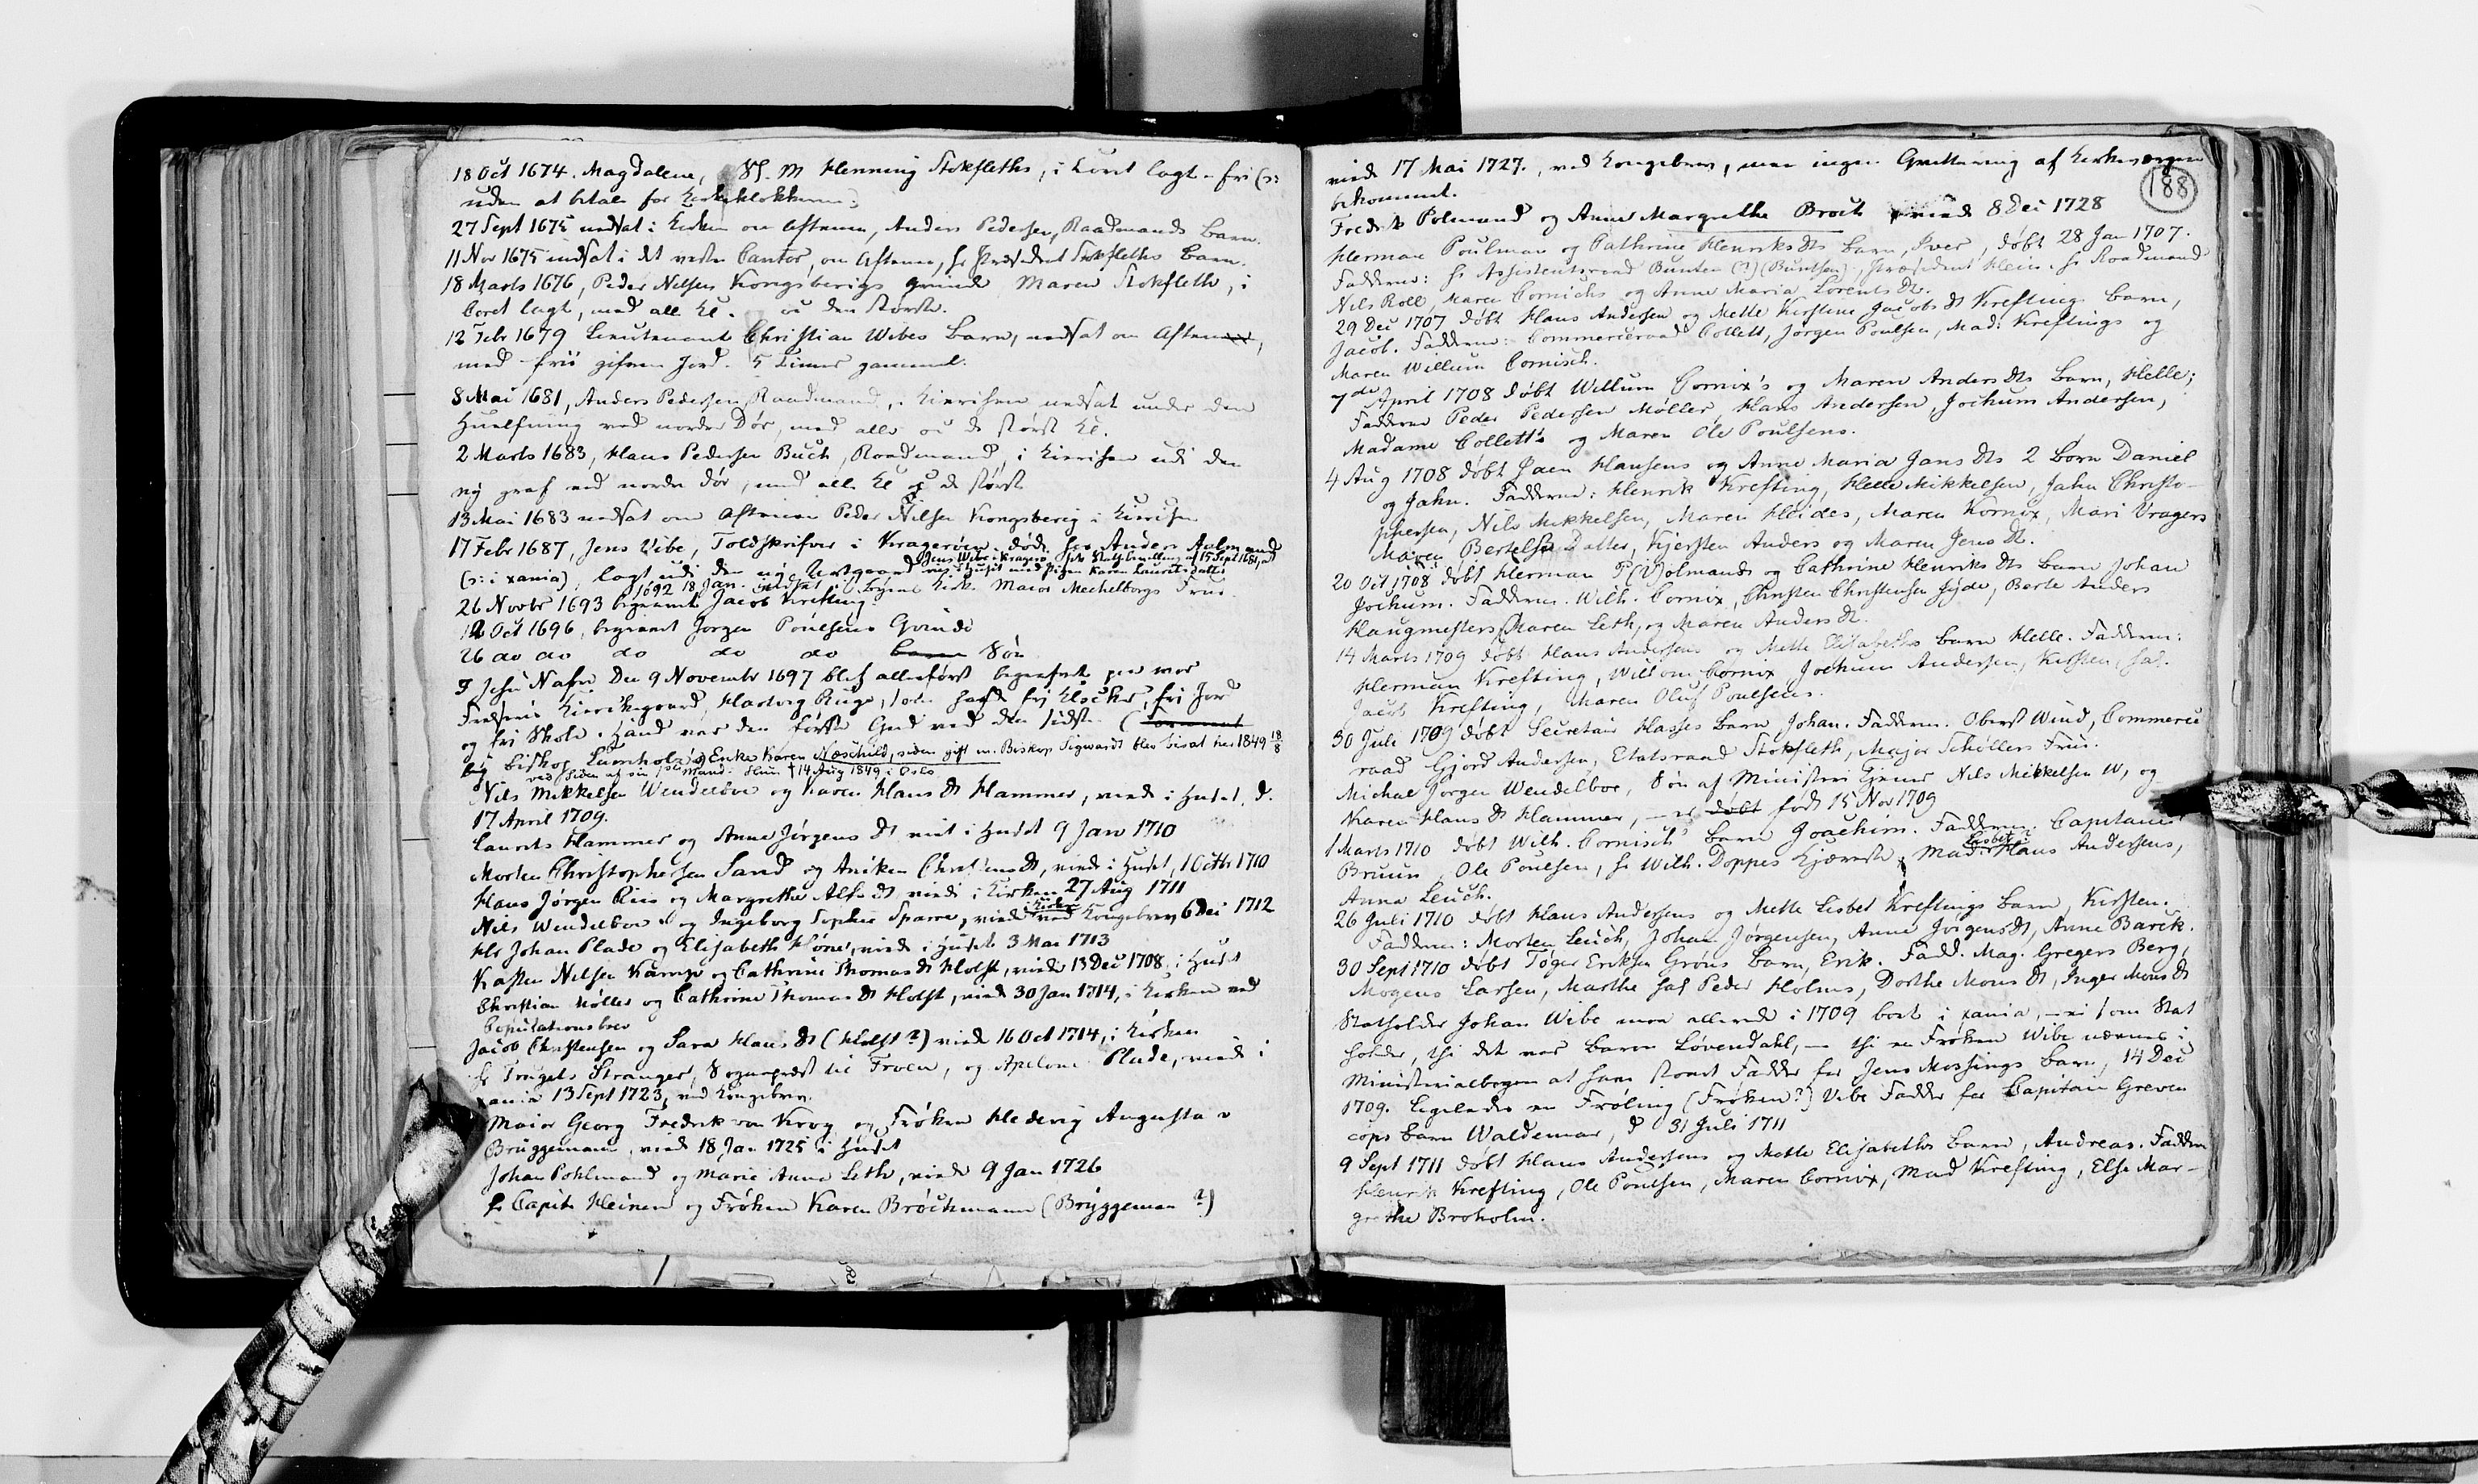 18 Oct 1674. Magdalene, Sl. M Henning Stokfleths, i Coret lagt - fri (o:
uden at betale for Kirkeklokkerne).
27 Sept 1675 nedsat i Kirken om Aftenen, Anders Pedersen, Raadmands Barn.
11 Nov 1675 indsat i det vestre Cantor, om Aftenen, Hr Præsident Stokfleths Barn.
18 Marts 1676, Peder Nilsen Kongsbergs qvinde Maren Stokfleth, i
Coret lagt, med alle Kl. oc den største.
12 Febr 1679 Lieutenant Christian Wibes Barn, nedsat om Aftenen,
med frii gifven Jord. 5 Timer gammel.
8 Mai 1681, Anders Pedersen Raadmand, i Kierchen nedsat under den
Huelfning ved norder Dør, med alle oc de størst Kl.
2 Marts 1683, Hans Pedersen Buch, Raadmand, i Kierchen udi den
ny graf ved norder dør, med alle Kl og de størst
13 Mai 1683 nedsat om Aftenen Peder Nilsen Kongsberig i Kirchen
17 Febr 1687, Jens Wibe, Toldskrifver i Kragerøen, døde hos Anders Aulmand
Jens Wibe i Kragerø fik Statholder 15 Sept 1681, at
vies i Huset med Pigen Karen Laurits datter
(o: i xania), lagt udi den ny Urtegaard
1692 18 Jan. indsat i Byens Kirke Maior Mechelborgs Frue.
26 Novbr 1693 begravet Jacob Krefting.
12 Oct 1696, begravet Jørgen Poulsens Qvinde
26 do do do do do Barn Søn
I Jesu Nafn Den 9 Novembr 1697 blef allerførst begrafvet paa vor
Frelseris Kierckegaard, Hartvig Ruge, som hafde fri Klocker, fri Jord
og fri Skole. Hand var den første Gud ved den sidste (
big Bishop Lumholtz's Enke Karen Næschild, siden gift m. Biskop Sigwardt blev bisat her 1849 18/8
ved siden af sin 1ste Mand. Hun † 14 Aug 1849 i Oslo
Nils Mikkelsen Wendelboe og Karen Hans Dt Hammer, viede i Huset, d.
17 April 1709.
Laurits Hammer og Anne Jørgens Dt viet i Huset 9 Jan 1710
Morten Christophersen Sand og Aniken Christensdt, viede i Huset, 1 Octbr 1710
Hans Jørgen Riis og Margrethe Alfs dt viede i Kirken 27 Aug 1711
Nils Wendelboe og Ingeborg Sophie Sparre, viede i Kirken ved Kongebrev, 6 Dec 1712
Hr Johan Plade og Elisabeth Høne, viede i Huset 3 Mai 1713
Kasten Nilsen Kampe og Cathrine Thomas dt Holst, viede 13 Dec 1708, i Huset
Christian Møller og Cathrine Thomas dt Holst, viede 30 Jan 1714, i Kirken ved
Copulationsbrev
Jacob Christensen og Sara Hans dt (Holst?) viede 16 Oct 1714, i Kirken
Hr Trugels Stranger, Sogneprest til Froen, og Apelone Plade, viede i
xania 13 Sept 1723, ved Kongebrev.
Maior Georg Fredrik von Krog og Frøken Hedevig Augusta v
Brüggemann, viede 18 Jan 1725 i Huset
Johan Pohlmand og Marie Anna Leth, viede 9 Jan 1726
Hr Capit. Heinen og Frøken Karen Brøckmann (Brüggeman?)
viede 17 Mai 1727., ved Kongebrev, men ingen Qvittering af Kirkeværgen
bekommet.
188
Fredrik Polmand og Anne Margrethe Broch viede 8 Dec 1728
Herman Poulman og Cathrine Henriksdts Barn, Iver, døbt 28 Jan 1707.
Fadderne: Hr Assistentsraad Bunten (?) (Buntsen), Præsident Klein. Hr Raadmand
Nils Roll, Maren Cornichs og Anne Maria Lorents Dt.
29 Dec 1707 døbt Hans Andersen og Mette Kirstine Jacobs dt Kreftings Barn,
Jacob. Fadderne: Commerceraad Collett, Jørgen Poulsen, Mad: Kreftings og
Maren Willum Cornisch.
7de April 1708 døbt Willum Cornix's og Maren Anders Dts Barn, Helle;
Fadderne Peder Pedersen Møller, Hans Andersen, Jochum Andersen,
Madame Collett's og Maren Ole Poulsens.
4 Aug 1708 døbt Jaen Hansens og Anne Maria Jans Dts 2 Børn Daniel
og Jahn. Fadderne: Henrik Krefting, Helle Mikkelsen, Jahn Christo-
phersen, Nils Mikkelsen, Maren Hoides, Maren Kornix, Mari Vragers
Maren Bertelse Datter, Kjersten Anders og Maren Jens Dt.
20 Oct 1708 døbt Herman P(V)olmands og Cathrine Henriks dts Barn Johan
Jochum. Fadderne. Wilh. Cornix, Christen Christensen Jyde, Berte Anders
Haugmesters, Maren Leth, og Maren Anders Dt.
14 Marts 1709 døbt Hans Andersens og Mette Elisabeths Barn Helle. Fadderne:
Herman Krefting, Willom Cornix, Jochum Andersen, Kirsten Sal.
Jacob Krefting, Maren Oluf Poulsens.
30 Juli 1709 døbt Secretair Hasses Barn, Johan. Fadderne. Oberst Wind, Commerce
raad Gjord Andersen, Etatsraad Stokfleth, Major Schøllers Frue.
Michal Jørgen Wendelboe, Søn af Ministri Tjener Nils Mikkelsen W, og
Karen Hans Dt Hammer, — er døbt født 15 Nov 1709
1 Marts 1710 døbt Wilh. Cornisch' Barn Joachim. Fadderne: Capitaine
Bruun, Ole Poulsen, Hr Wilh. Doppes Kjæreste, Mad. Lisbet Hans Andersens,
Anna Leuch.
26 Juli 1710 døbt Hans Andersens og Mette Lisbet Kreftings Barn, Kirsten.
Fadderne: Morten Leuch, Johan Jørgensen, Anne Jörgensdt, Anne Barck.
30 Sept 1710 døbt Tøger Eriksen Grøns Barn, Erik. Fadd. Mag. Gregers Berg,
Mogens Larsen, Marthe Sal Peder Holms, Dorthe Mons Dt, Inger Mons dt
Statholder Johan Wibe maa allerede i 1709 boet i xania, — ei som Stat
holder, thi det var Baron Løvendahl, — thi en Frøken Wibe nævnes i
Ministerialbogen at have staaet Fadder for Jens Mossings Barn, 14 Dec
1709. Ligeledes en Frøling (Frøken?) Vibe Fadder for Capitain Greven
cops Barn Waldemar, d 31 Juli 1711
9 Sept 1711 døbt Hans Andersens og Mette Elisabeths Barn, Andreas. Faddere
Henrik Krefting, Ole Poulsen, Maren Cornix, Mad Krefting, Else Mar-
grethe Broholm.